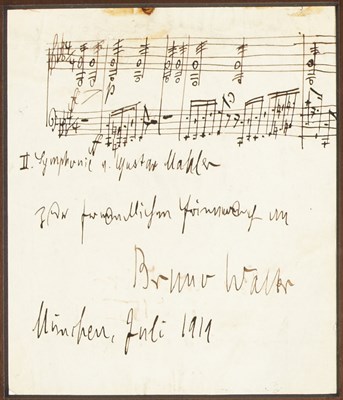 II. Symphonie v. Gustav Mahler
zur freundlichen Erinnerung an
Bruno Walter
München, Juli 1919